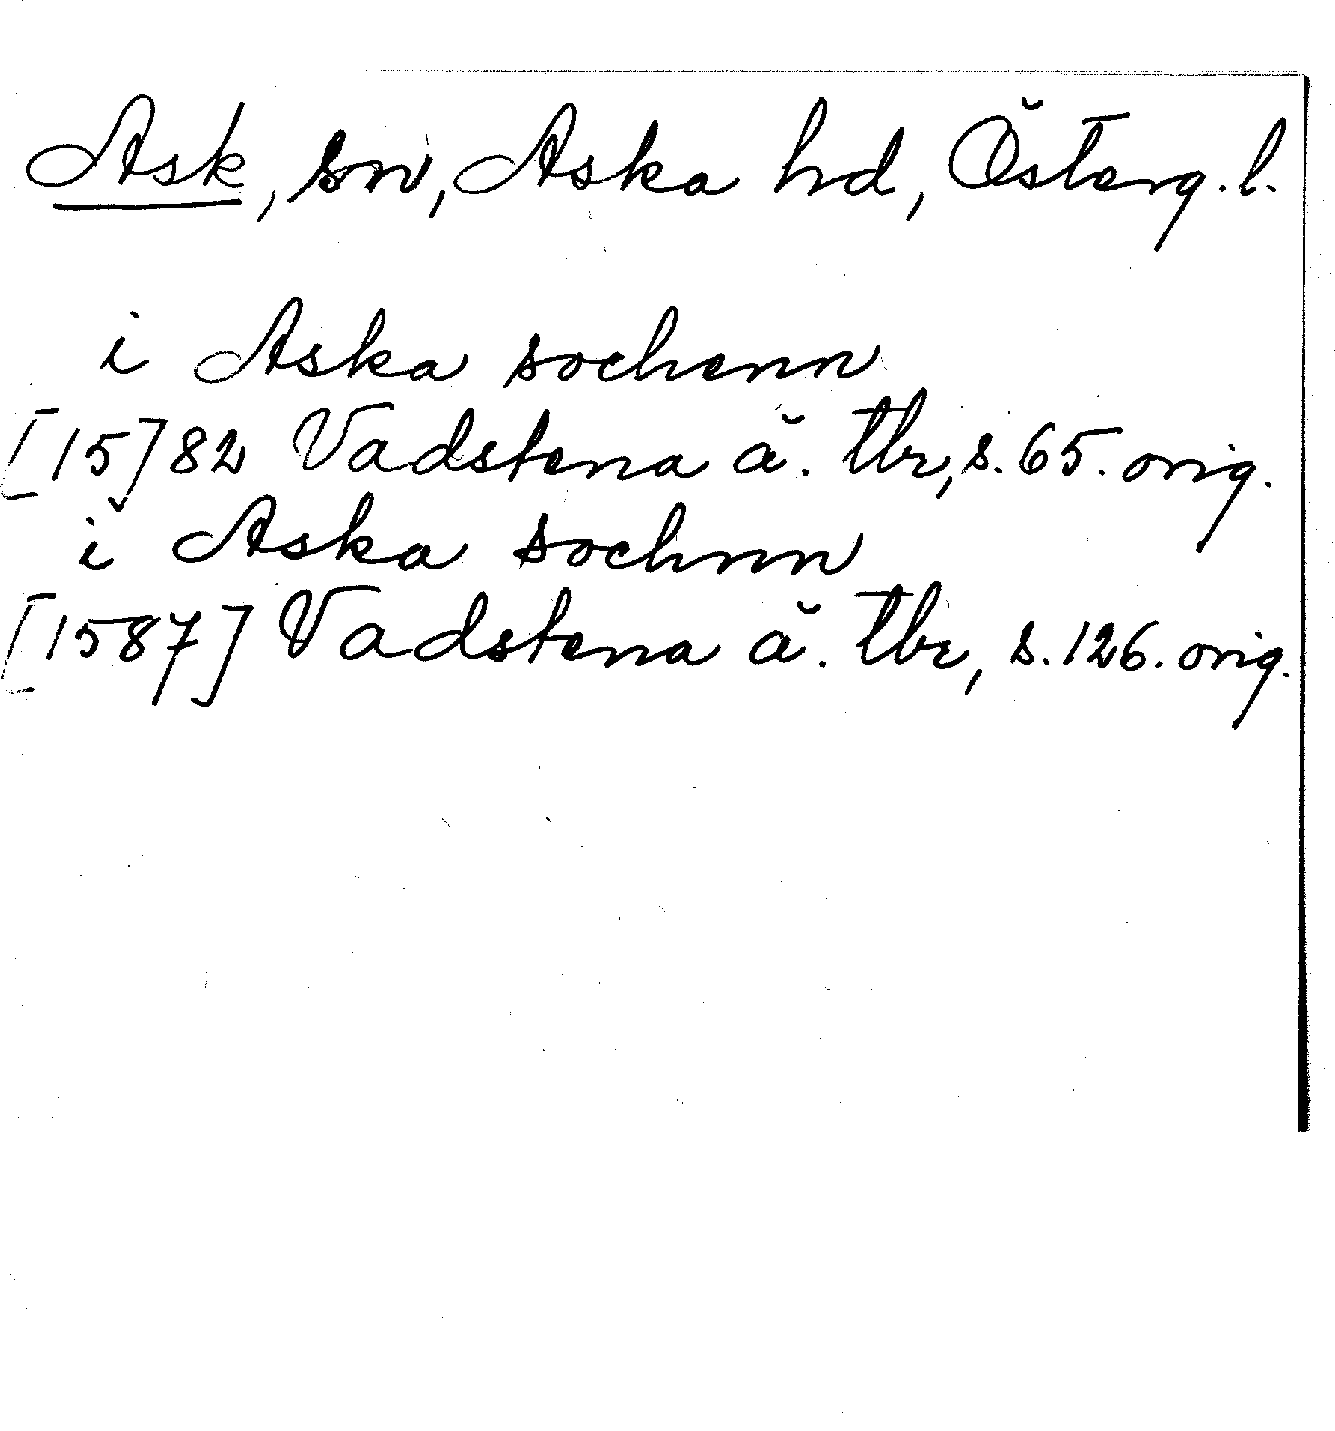 Ask, sn, Aska hd, Österg. l.
i Aska sochenn
[15]82 Vadstena ä. tbr, s. 65. orig.
i Aska sochnn
[1587] Vadstena ä. tbr, s. 126. orig.